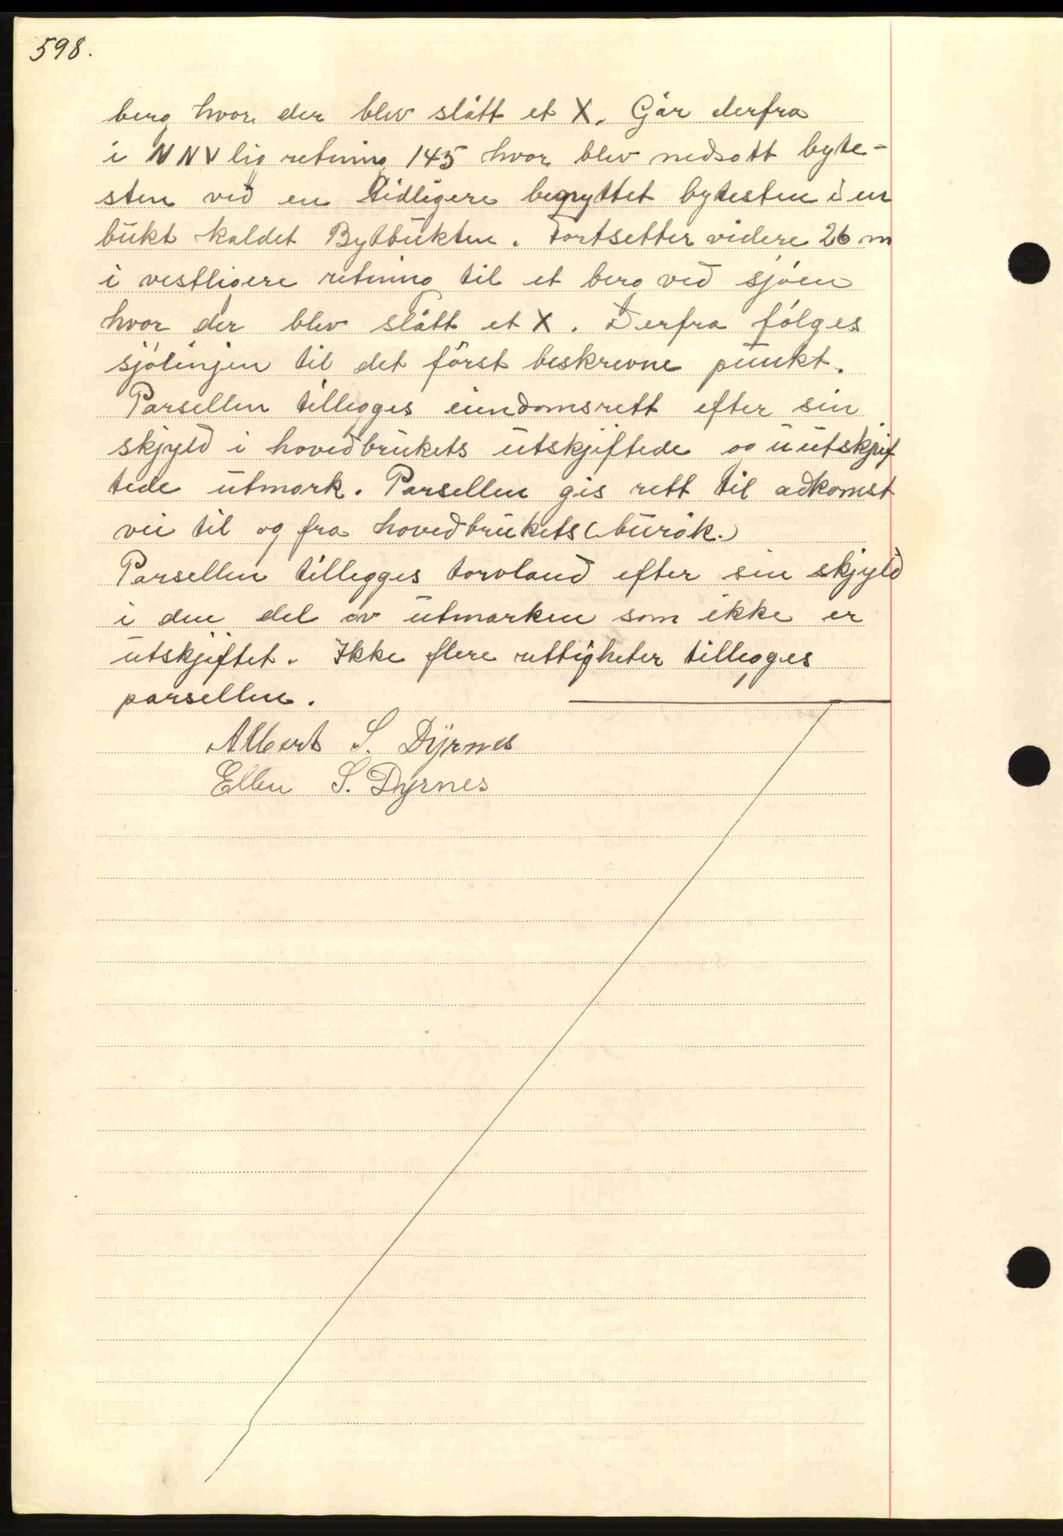 598.
berg hvor der blev slått et X. Går derfra
i NNVlig retning 145 hvor blev nedsatt byte-
sten ved en tidligere benyttet bytesten i en
bukt kaldet Bytbukten. Fortsetter videre 26 m
i vestligere retning til et berg ved sjøen
hvor der blev slått et X. Derfra følges
sjölinjen til det först beskrevne punkt.
Parsellen tillegges eiendomsrett efter sin
skjyld i hovedbrukets utskjiftede og uutskjif
tede utmark. Parsellen gis rett til adkomst
vei til og fra hovedbrukets (buråk.)
Parsellen tillegges torvland efter sin skjyld
i den del av utmarken som ikke er
utskjiftet. Ikke flere rettigheter tillegges
parsellen.
Albert S. Dyrnes
Ellen S. Dyrnes